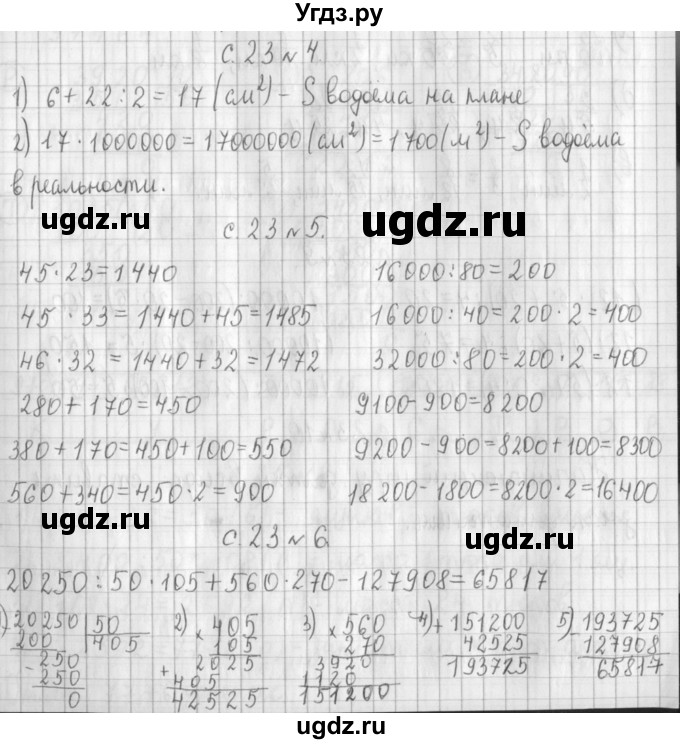 Угдз.ру
с. 23 № 4
1) 6 + 22 : 2 = 17 (см²) - S водоёма на плане
2) 17 · 1000000 = 17000000 (см²) = 1700 (м²) - S водоёма
в реальности.
ugdz.ru
ugdz.ru
с. 23 № 5.
45 · 23 = 1440
16000 : 80 = 200
45 · 33 = 1440 + 45 = 1485
16000 : 40 = 200 · 2 = 400
46 · 32 = 1440 + 32 = 1472
32000 : 80 = 200 · 2 = 400
280 + 170 = 450
9100 - 900 = 8200
380 + 170 = 450 + 100 = 550
9200 - 900 = 8200 + 100 = 8300
560 + 340 = 450 · 2 = 900
18200 - 1800 = 8200 · 2 = 16400
ugdz.ru
ugdz.ru
с. 23 № 6
20250 : 50 · 105 + 560 · 270 - 127908 = 65817
1) 20250 | 50
200 405
- 250
250
0
2) × 405
105
2025
+ 405
42525
3) × 560
270
3920
1120
151200
4) + 151200
42525
193725
5) - 193725
127908
65817
ugdz.ru